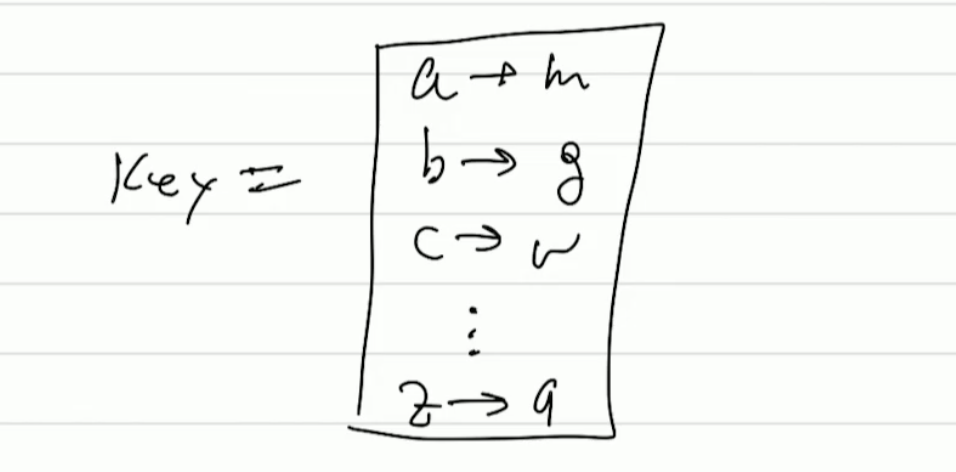 Key =
a → m
b → g
c → w
⋮
z → q